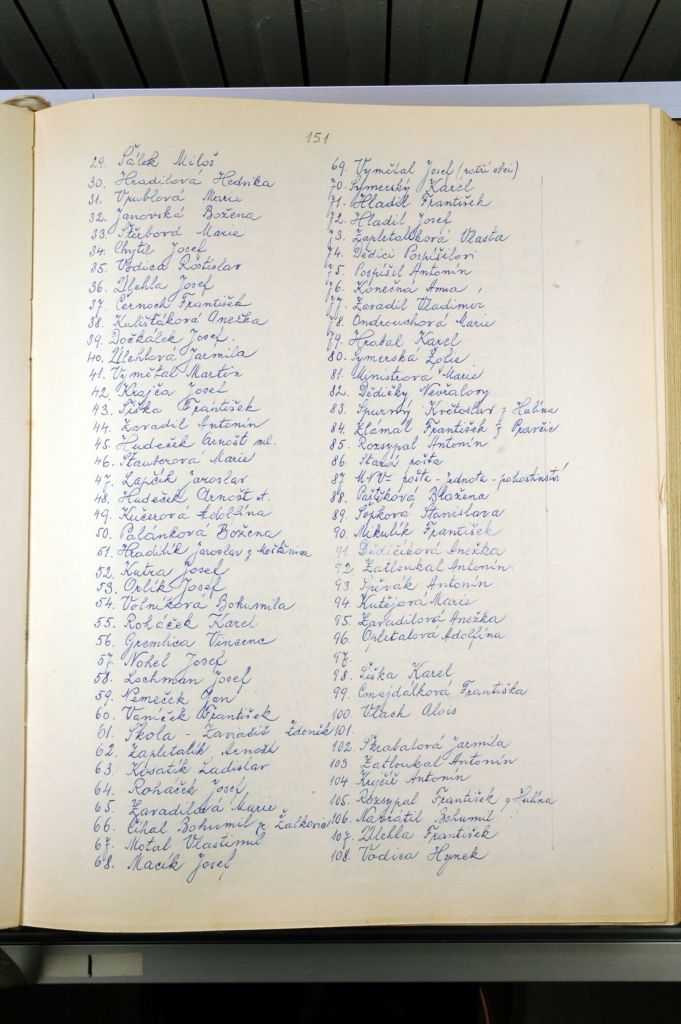 151
29. Sálek Miloš
30. Hradilová Hedvika
31. Vrublová Marie
32. Janovská Božena
33. Štěrbová Marie
34. Chytil Josef
35. Vodica Rostislav
36. Úlehla Josef
37. Černoch František
38. Kulišťáková Anežka
39. Dočkálek Josef.
40. Úlehlová Jarmila
41. Vymětal Martin
42. Krajča Josef
43. Šiška František
44. Zavadil Antonín
45. Hudeček Arnošt ml.
46. Stauberová Marie
47. Lapčík Jaroslav
48. Hudeček Arnošt st.
49. Kučerová Adolfína
50. Palánková Božena
51. Hradilík Jaroslav z Moštěnice
52. Kutra Josef
53. Orlík Josef
54. Volníková Bohumila
55. Roháček Karel
56. Gremlica Vincenc
57. Nohel Josef
58. Lochman Josef
59. Nemeček Jan
60. Vaníček František
61. Škola - Zanášil Zdeněk
62. Zapletalík Arnošt
63. Kosatík Ladislav
64. Roháček Josef
65. Zavadilová Marie
66. Číhal Bohumil ze Žalkovic
67. Motal Vlastimil
68. Macík Josef
69. Vymětal Josef (patří obci)
70. Symerský Karel
71. Hladil František
72. Hladil Josef
73. Zapletalíková Vlasta
74. Dědici Pospíšilovi
75. Pospíšil Antonín
76. Konečná Anna
77. Zavadil Vladimír
78. Ondrouchová Marie
79. Hrabal Karel
80. Symerská Žofie
81. Ministrová Marie
82. Dědičky Nevřalovy
83. Spurný Květoslav z Hulína
84. Zlámal František z Pravčic
85. Rozsypal Antonín
86. Stará pošta
87. MNV - pošta - Jednota - pohostinství
88. Paštěková Blažena
89. Sopková Stanislava
90. Mikulík František
91. Dědičíková Anežka
92. Zatloukal Antonín.
93. Spěvák Antonín
94. Kutějová Marie
95. Zavadilová Anežka
96. Opletalová Adolfína
97.
98. Šiška Karel
99. Cmajdálková Františka
100. Vlach Alois
101.
102. Škrabalová Jarmila
103. Zatloukal Antonín
104. Antonín
105. Rozsypal František z Hulína
106. Navrátil Bohumil
107. Úlehla František
108. Vodica Hynek